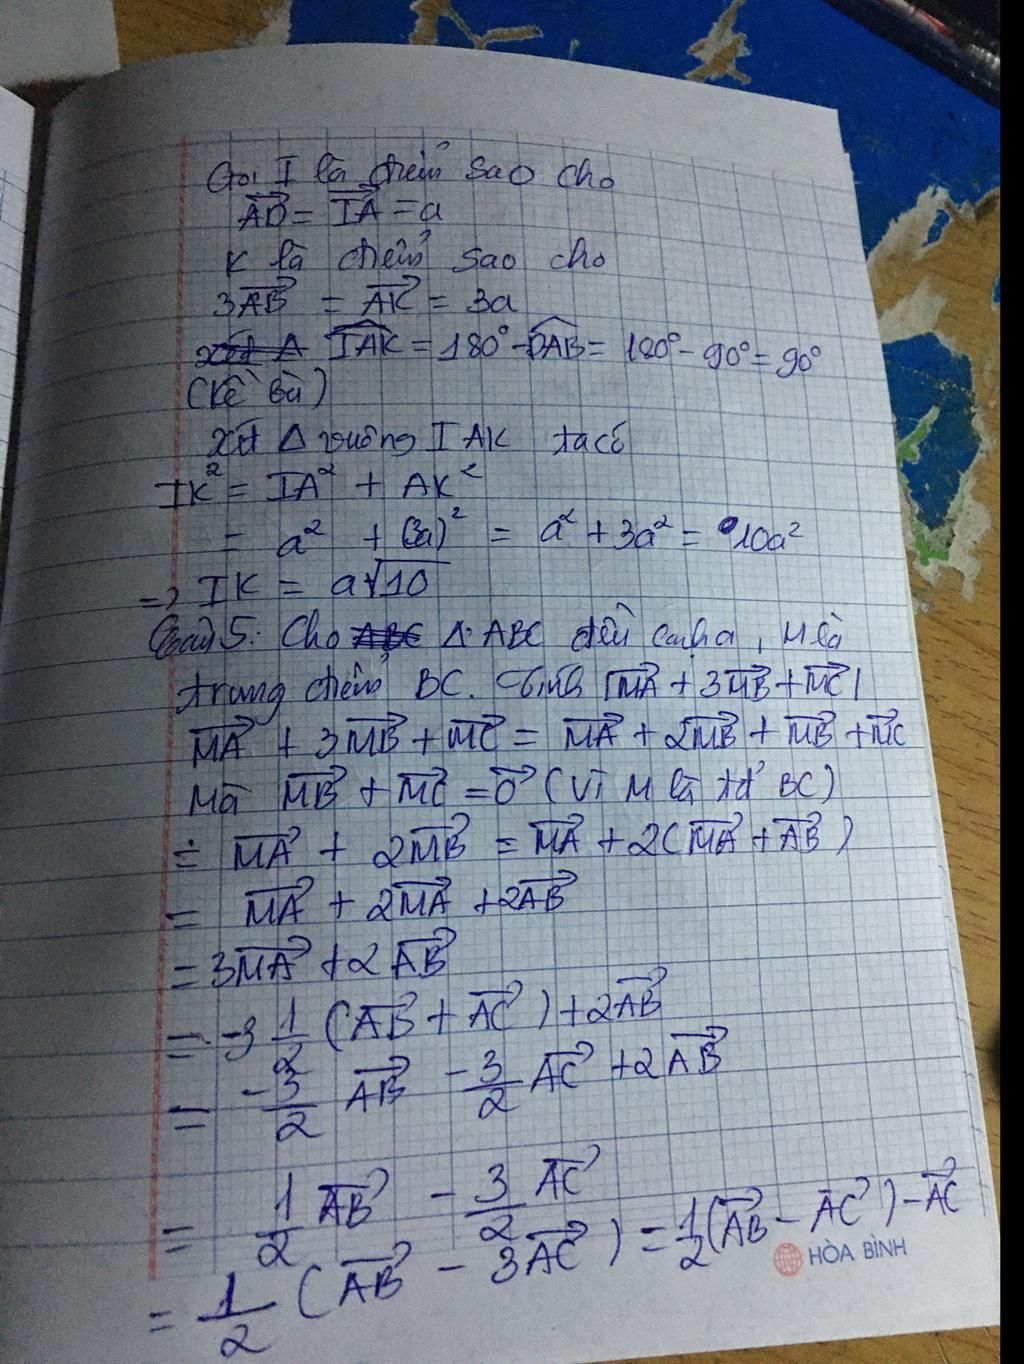 Gọi I là điểm sao cho
AD = IA = a
K là điểm sao cho
3AB = AK = 3a
IAK = 180° - DAB = 180° - 90° = 90°
(kề bù)
xét Δ vuông IAK ta có
IK² = IA² + AK²
= a² + (3a)² = a² + 3a² = 10a²
=> IK = a√10
Bài 5: Cho Δ ABC đều cạnh a, M là
trung điểm BC. Tính |MA + 3MB + MC|
MA + 3MB + MC = MA + 2MB + MB + MC
Mà MB + MC = 0 (Vì M là tđ BC)
= MA + 2MB = MA + 2(MA + AB)
= MA + 2MA + 2AB
= 3MA + 2AB
= -3 1/2 (AB + AC) + 2AB
= -3/2 AB - 3/2 AC + 2AB
= 1/2 AB - 3/2 AC
= 1/2 (AB - 3AC) = 1/2 (AB - AC) - AC
HÒA BÌNH